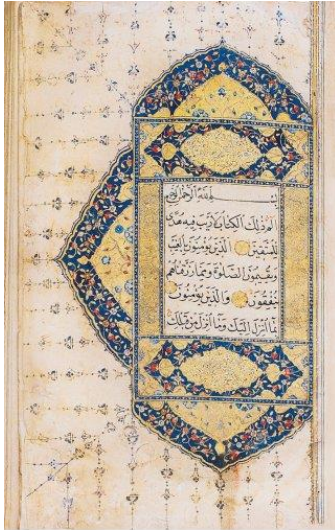 بسم الله الرحمن الرحيم
الم ذلك الكتاب لا ريب فيه هدى
للمتقين الذين يؤمنون بالغيب
ويقيمون الصلوة ومما رزقناهم
ينفقون والذين يؤمنون
بما انزل اليك وما انزل من قبلك